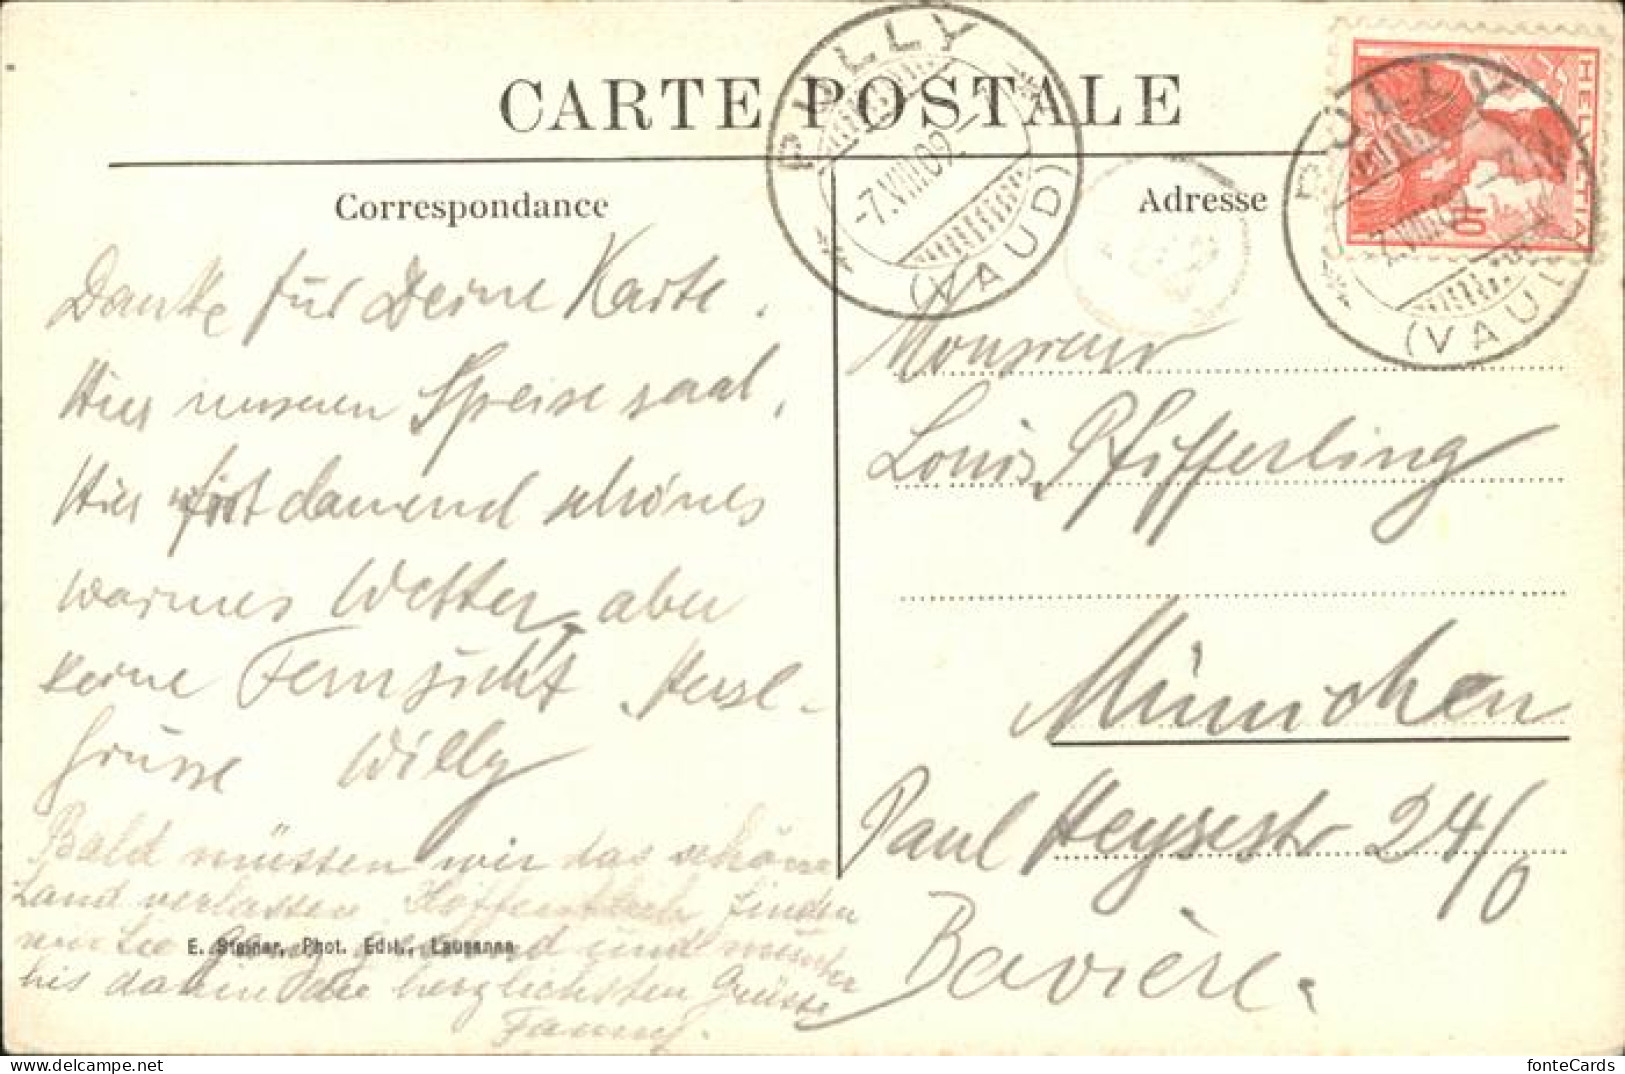 CARTE POSTALE
Correspondance
Adresse
PULLY
-7.VIII.09.-
(VAUD)
HELVETIA
10
PULLY
-7.VIII.09.-
(VAUD)
Danke für Deine Karte.
Hier unseren Speisesaal.
Hier ist dauernd schönes
warmes Wetter, aber
keine Fernsicht. Herzl-
Grüsse Willy
Bald müssen wir das schöne
Land verlassen. Hoffentlich finden
wir Leo ganz gesund und munter
bis dahin die herzlichsten Grüsse
Fanny.
E. Steiner, Phot. Edit., Lausanne
Monsieur
Louis Pfifferling
München
Paul Heysestr 24/0
Bavière.
fonteCards